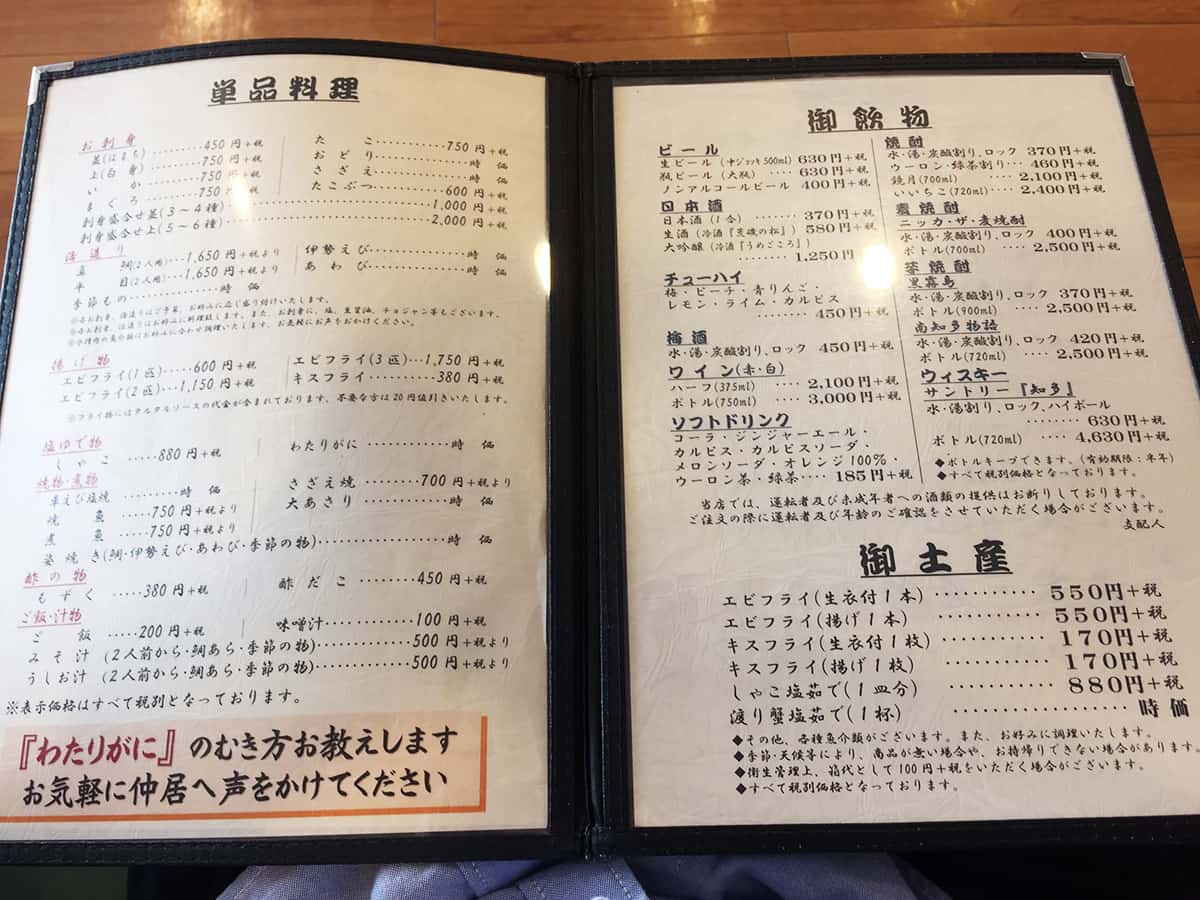 単品料理
お刺身
並(はまち)………450円+税
上(白身)………750円+税
いか………750円+税
まぐろ………750円+税
刺身盛合せ並(3～4種)………1,000円+税
刺身盛合せ上(5～6種)………2,000円+税
たこ………750円+税
おどり………時価
さざえ………時価
たこぶつ………600円+税
活造り
真鯛(2人用)…1,650円+税より
平目(2人用)…1,650円+税より
季節もの………時価
伊勢えび………時価
あわび………時価
揚げ物
エビフライ(1匹)……600円+税
エビフライ(2匹)…1,150円+税
エビフライ(3匹)…1,750円+税
キスフライ………380円+税
※フライ物にはタルタルソースの代金が含まれております、不要な方は20円値引きいたします。
塩ゆで物
しゃこ……880円+税
わたりがに………時価
焼物・煮物
車えび塩焼………時価
焼魚……750円+税より
煮魚……750円+税より
さざえ焼………700円+税より
大あさり………時価
姿焼き(鯛・伊勢えび・あわび・季節の物)………時価
酢の物
もずく……380円+税
酢だこ………450円+税
ご飯・汁物
ご飯……200円+税
味噌汁………100円+税
みそ汁(2人前から・鯛あら・季節の物)………500円+税より
うしお汁(2人前から・鯛あら・季節の物)………500円+税より
※表示価格はすべて税別となっております。
『わたりがに』のむき方お教えします
お気軽に仲居へ声をかけてください
御飲物
ビール
生ビール(中ジョッキ500ml) 630円+税
瓶ビール(大瓶)……630円+税
ノンアルコールビール 400円+税
日本酒
日本酒(1合)………370円+税
生酒(冷酒『荒磯の松』) 580円+税
大吟醸(冷酒『うめごころ』)
………1,250円+税
チューハイ
梅・ピーチ・青りんご・
レモン・ライム・カルピス
………450円+税
梅酒
水・湯・炭酸割り、ロック 450円+税
ワイン(赤・白)
ハーフ(375ml)……2,100円+税
ボトル(750ml)……3,000円+税
ソフトドリンク
コーラ・ジンジャーエール・
カルピス・カルピスソーダ・
メロンソーダ・オレンジ100%・
ウーロン茶・緑茶……185円+税
焼酎
水・湯・炭酸割り、ロック 370円+税
ウーロン・緑茶割り… 460円+税
鏡月(700ml)……2,100円+税
いいちこ(720ml)……2,400円+税
麦焼酎
ニッカ・ザ・麦焼酎
水・湯・炭酸割り、ロック 400円+税
ボトル(700ml)……2,500円+税
芋焼酎
黒霧島
水・湯・炭酸割り、ロック 370円+税
ボトル(900ml)……2,500円+税
南知多物語
水・湯・炭酸割り、ロック 420円+税
ボトル(720ml)……2,500円+税
ウィスキー
サントリー『知多』
水・湯割り、ロック、ハイボール
………630円+税
ボトル(720ml)……4,630円+税
◆ボトルキープできます。(有効期限：半年)
◆すべて税別価格となっております。
当店では、運転者及び未成年者への酒類の提供はお断りしております。
ご注文の際に運転者及び年齢のご確認をさせていただく場合がございます。
支配人
御土産
エビフライ(生衣付1本)………550円+税
エビフライ(揚げ1本)………550円+税
キスフライ(生衣付1枚)………170円+税
キスフライ(揚げ1枚)………170円+税
しゃこ塩茹で(1皿分)………880円+税
渡り蟹塩茹で(1杯)………時価
◆その他、各種魚介類がございます。また、お好みに調理いたします。
◆季節・天候等により、商品が無い場合や、お持帰りできない場合があります。
◆衛生管理上、箱代として100円+税をいただく場合がございます。
◆すべて税別価格となっております。